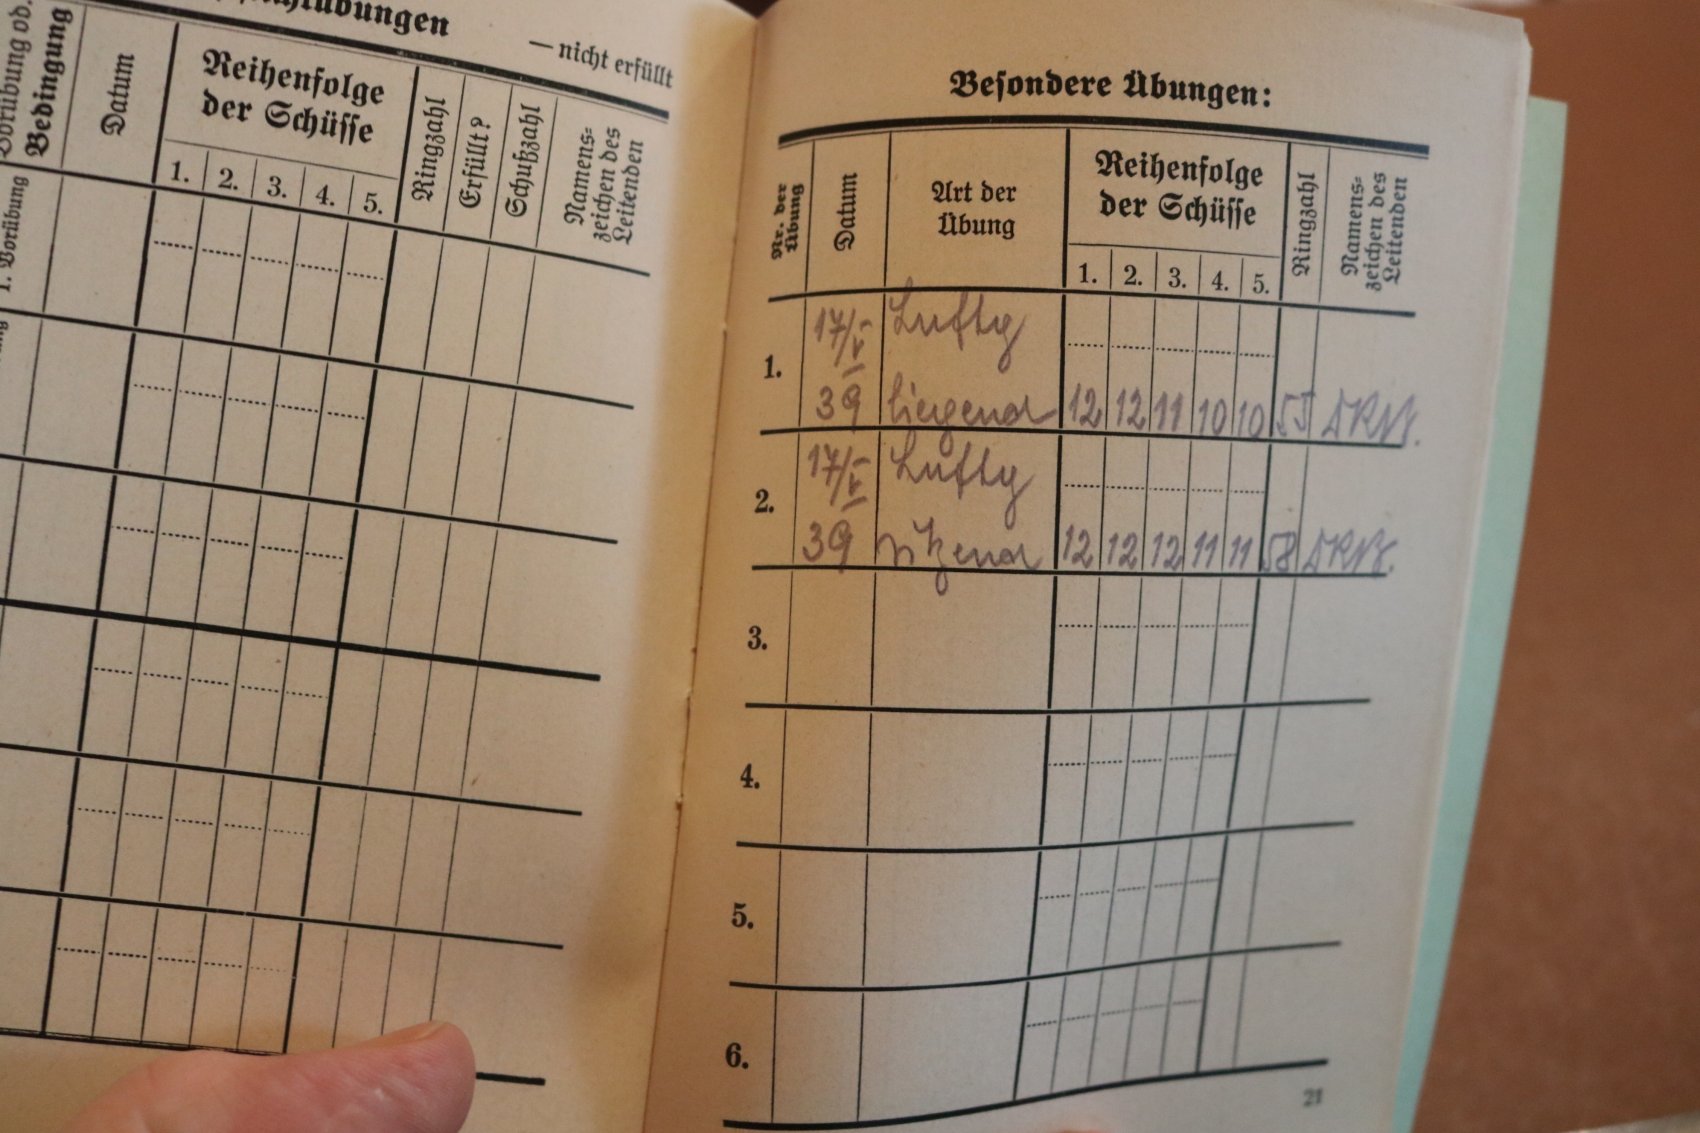 übungen
— nicht erfüllt
Vorübung od. Bedingung
Datum
Reihenfolge
der Schüsse
1. 2. 3. 4. 5.
Ringzahl
Erfüllt?
Schußzahl
Namens-
zeichen des
Leitenden
1. Vorübung
Besondere Übungen:
Nr. der
Übung
Datum
Art der
Übung
Reihenfolge
der Schüsse
1. 2. 3. 4. 5.
Ringzahl
Namens-
zeichen des
Leitenden
17/V Luftg
1.
39 liegend 12 12 11 10 10 55
17/V Luftg
2.
39 sitzend 12 12 12 11 11 58
3.
4.
5.
6.
21